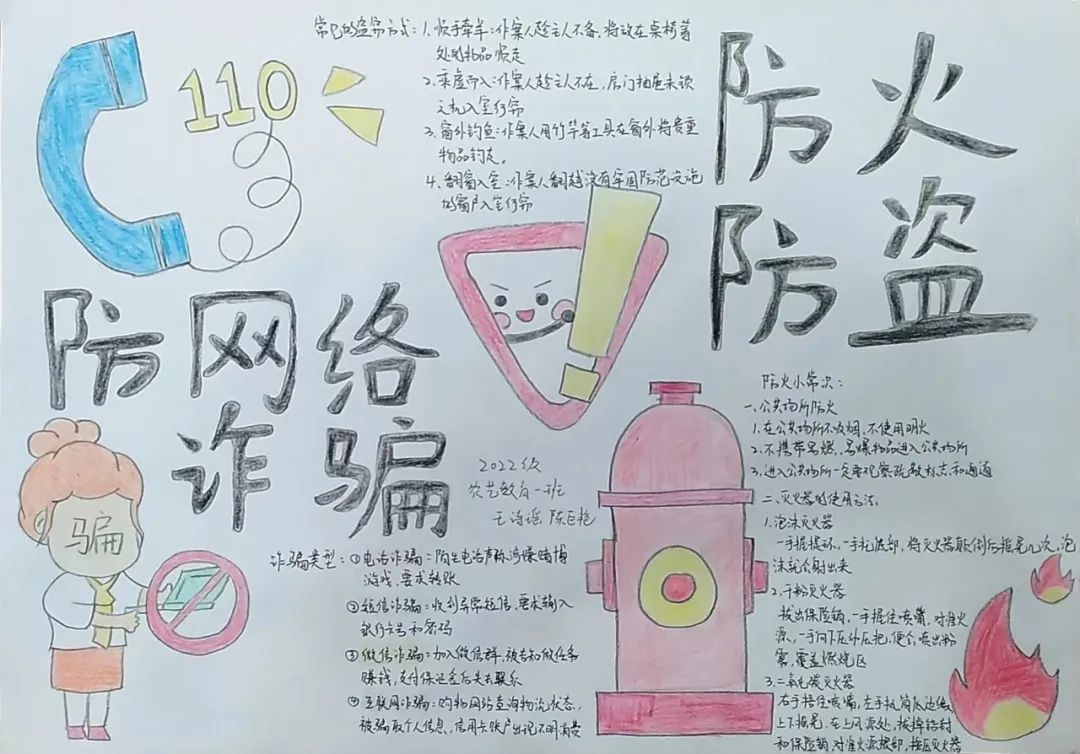 常见的盗窃方式：1、顺手牵羊：作案人趁主人不备，将放在桌椅等
处的物品顺走
2、乘虚而入：作案人趁主人不在，房门抽屉未锁
之机入室行窃
3、窗外钓鱼：作案人用竹竿等工具在窗外将贵重
物品钓走。
4、翻窗入室：作案人翻越没有牢固防范设施
的窗户入室行窃
110
防火
防盗
防网络
诈骗
骗
2022级
农艺教育一班
王诗瑶 陈巨艳
诈骗类型：①电话诈骗：陌生电话声称涉嫌赌博
游戏，要求转账
②短信诈骗：收到异常短信，要求输入
银行卡号和密码
③微信诈骗：加入微信群，被告知做任务
赚钱，支付保证金后失去联系
④互联网诈骗：购物网站查询物流状态，
被骗取个人信息，信用卡账户出现不明消费
防火小常识：
一、公共场所防火
1.在公共场所不吸烟，不使用明火
2.不携带易燃、易爆物品进入公共场所
3.进入公共场所一定要观察疏散标志和通道
二、灭火器的使用方法：
1.泡沫灭火器
一手握提环，一手扎底部，将灭火器颠倒后摇晃几次，泡
沫就会射出来
2.干粉灭火器
拔出保险销，一手握住喷嘴，对准火
源，一手向下压外压把，便会喷出粉
雾，覆盖燃烧区
3.二氧化碳灭火器
右手握住喷嘴，左手扎筒底边缘
上下摇晃，在上风源处，拔掉铅封
和保险销，对准火源根部，按压灭火器